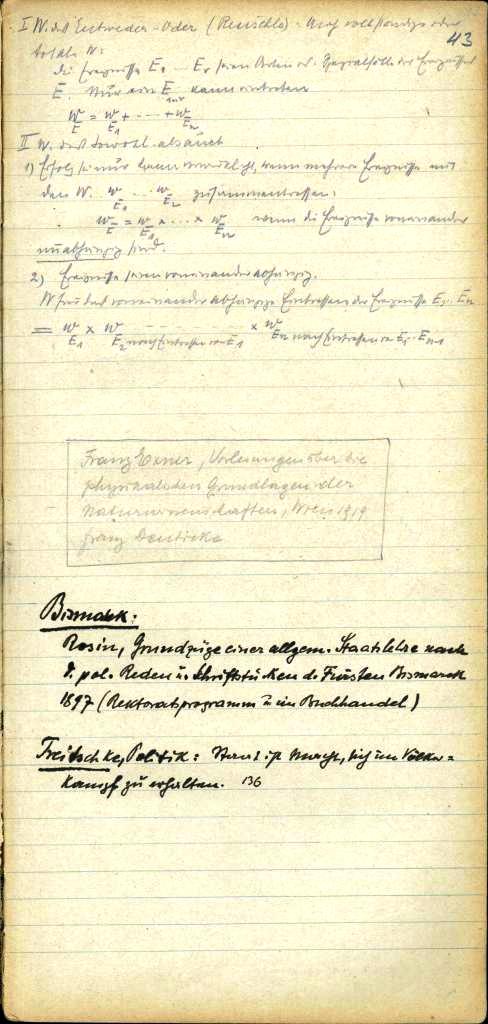 43
I W. des Entweder-Oder (Reuschle) = Auch vollständige oder
totale W:
Die Ereignisse E₁ … Eᵣ seien Arten od. Spezialfälle des Ereignisses
E. Nur ein E kann eintreten
W = W + ---- + W
E E₁ Eₙ
II W. des Sowohl-als auch
1) Erfolg sei nur dann verwirklicht, wenn mehrere Ereignisse mit
den W. W ... W zusammentreffen:
E₁ E₂
W = W × ... × W wenn die Ereignisse voneinander
E E₁ Eₙ
unabhängig sind.
2) Ereignisse seien voneinander abhängig.
W für das voneinander abhängige Eintreffen der Ereignisse E₁..Eₙ
= W × W ---- × W
E₁ E₂ nach Eintreffen von E₁ Eₙ nach Eintreffen von E₁..Eₙ₋₁
Franz Exner, Vorlesungen über die
physikalischen Grundlagen der
Naturwissenschaften, Wien 1919
Franz Deuticke
Bismarck:
Rosin, Grundzüge einer allgem. Staatslehre nach
d. pol. Reden u. Schriftstücken d. Fürsten Bismarck
1897 (Rektoratsprogramm u. im Buchhandel)
Treitschke, Politik: Staat ist Macht, sich im Völker=
kampf zu erhalten. 136